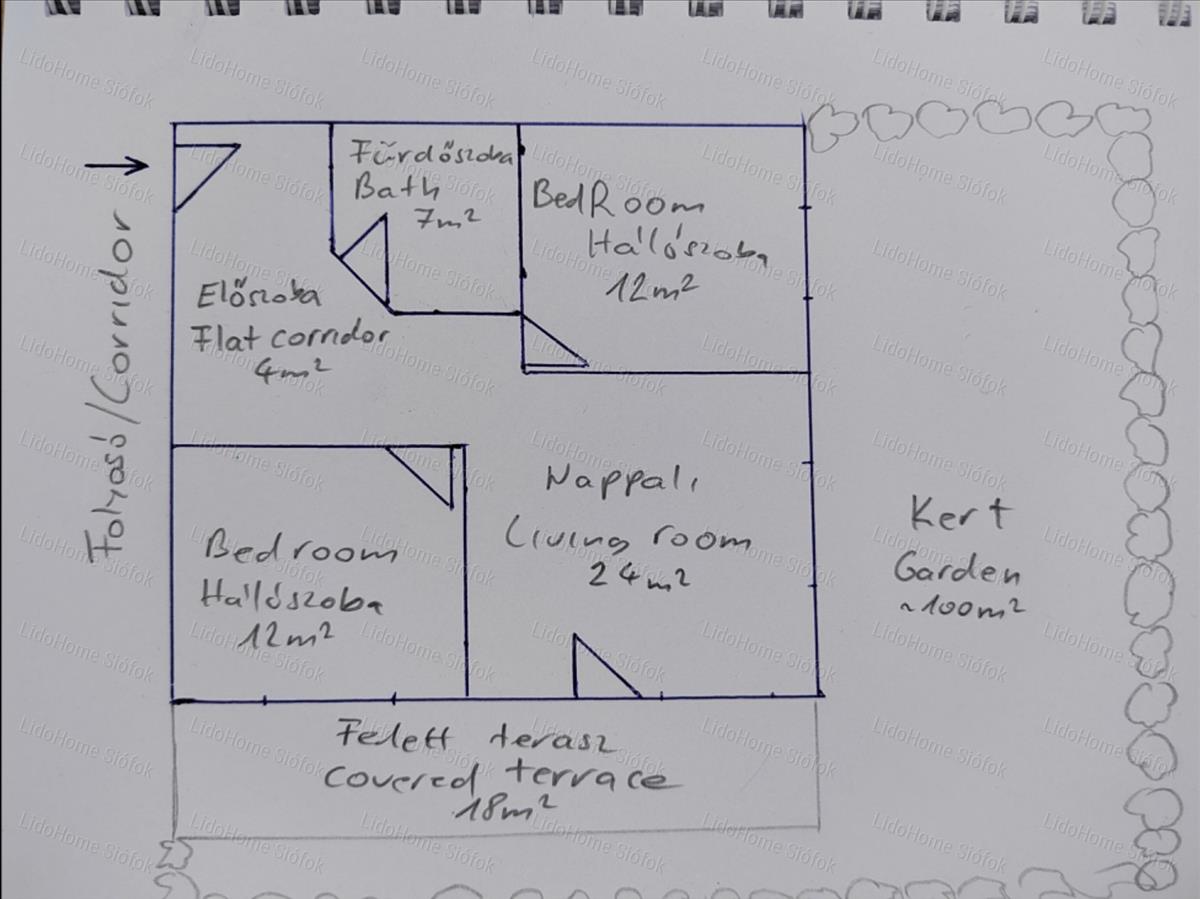 Fürdőszoba
Bath
7m²
BedRoom
Hálószoba
12m²
Előszoba
Flat corridor
4m²
Folyosó/Corridor
Nappali
Living room
24m²
Bedroom
Hálószoba
12m²
Kert
Garden
~100m²
Felett terasz
covered terrace
18m²
LidoHome Siófok